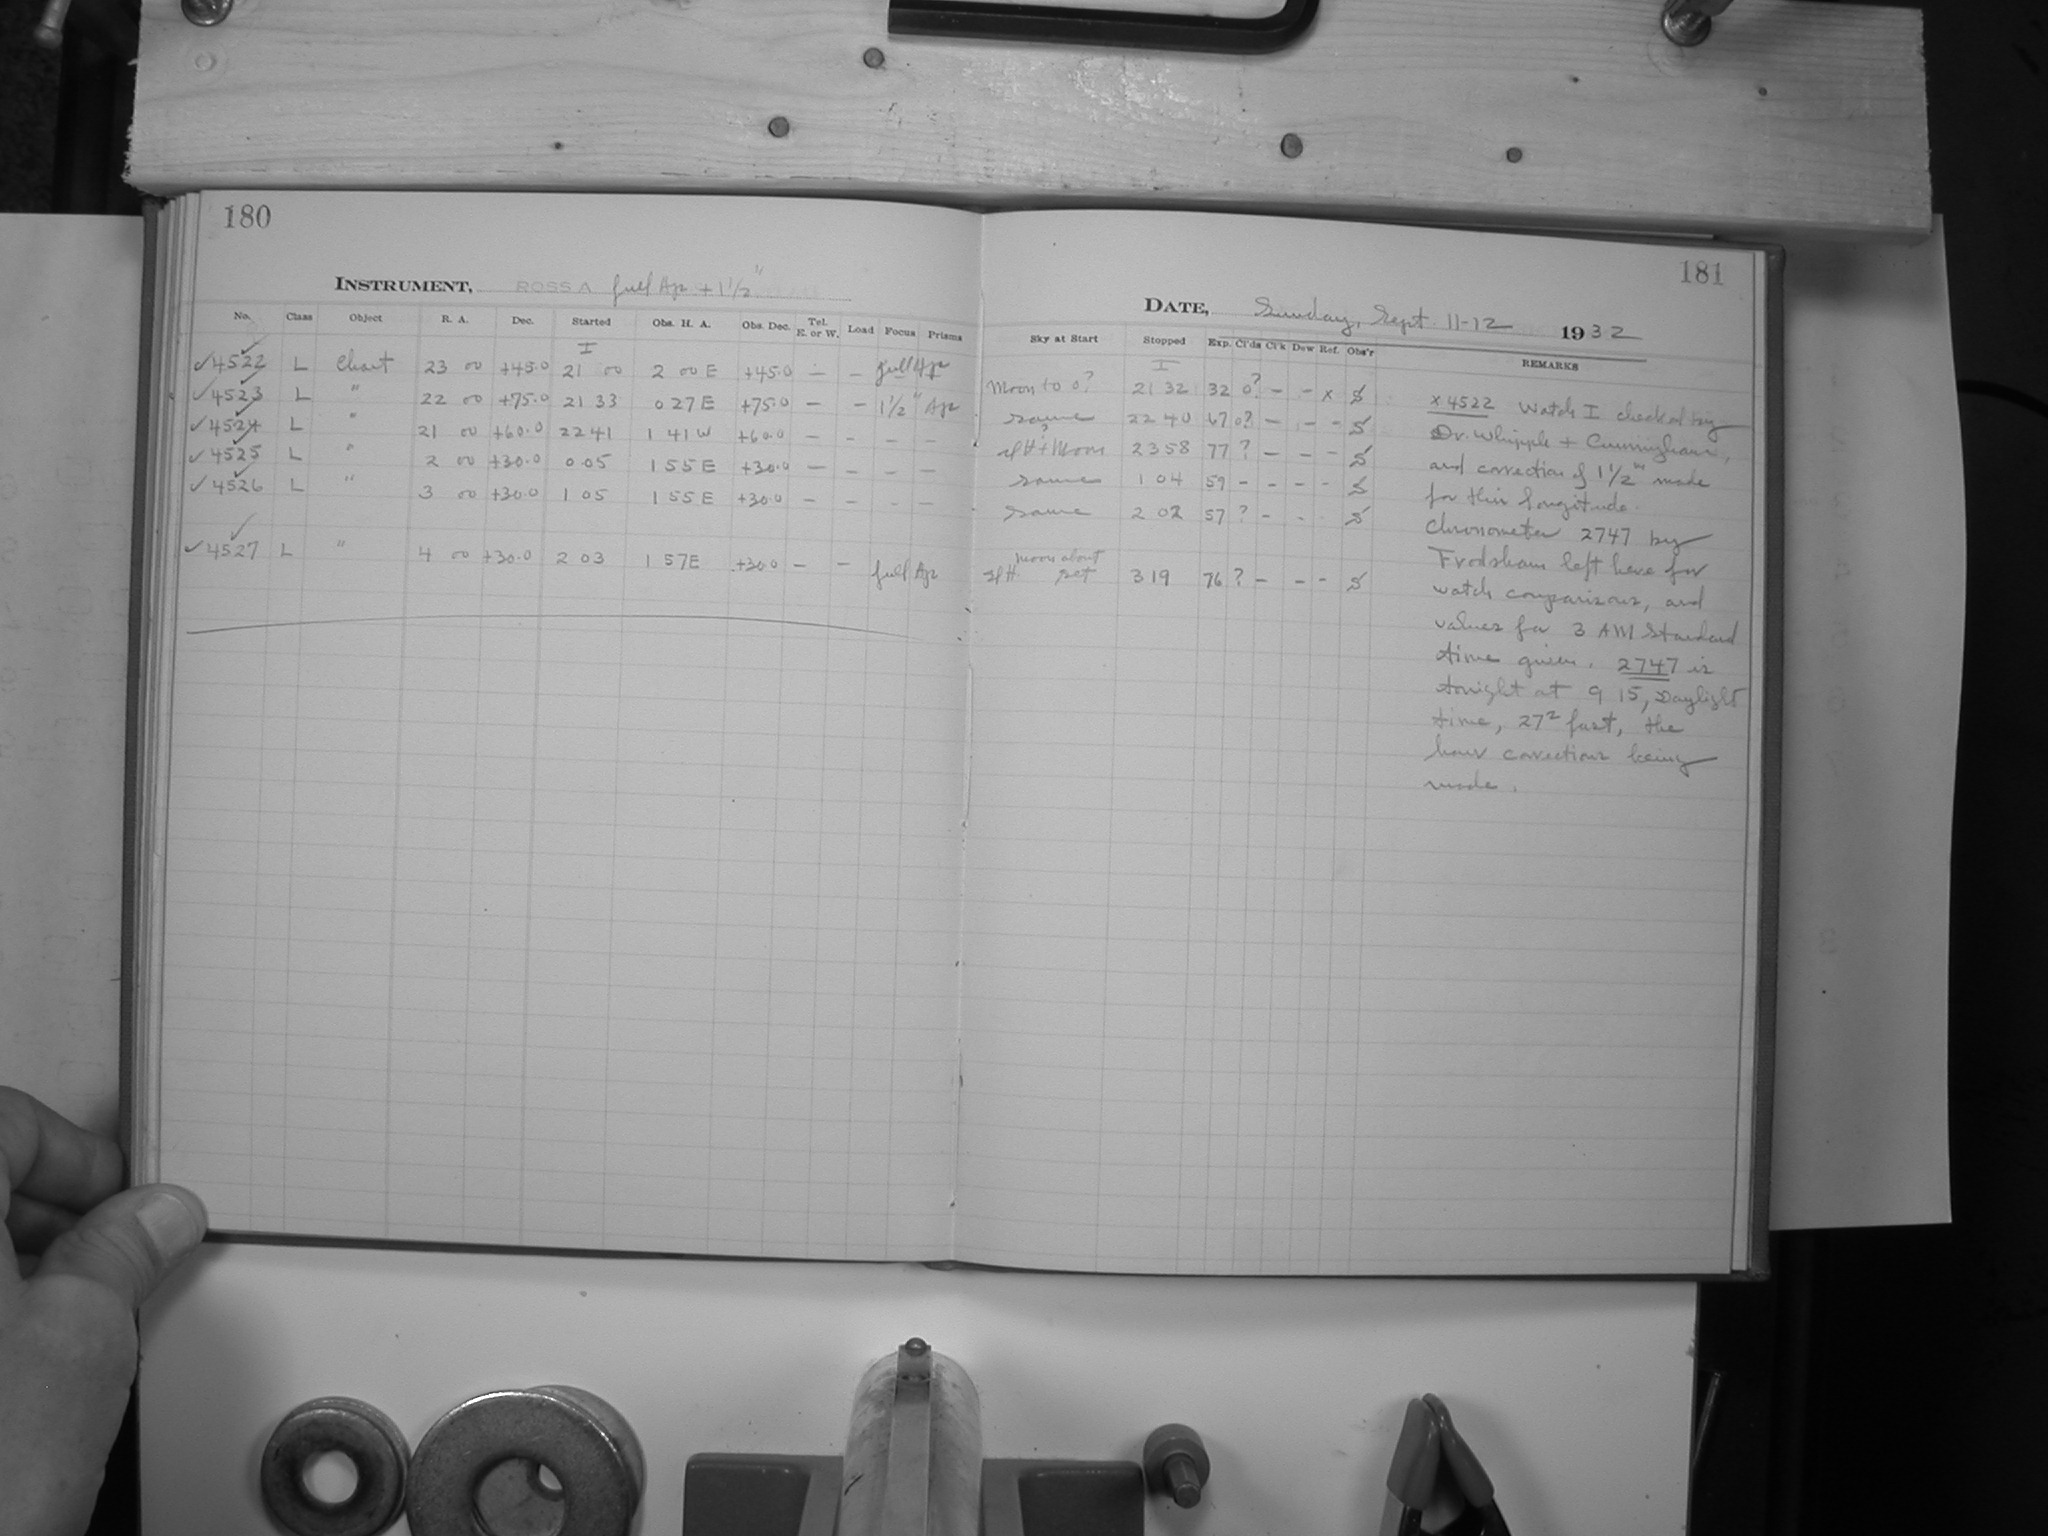 180
INSTRUMENT, ROSS A full Apr + 1 1/2"
No. Class Object R. A. Dec. Started Obs. H. A. Obs. Dec. Tel. E. or W. Load Focus Prisms
I
✓4522 L Chart 23 00 +45.0 21 00 2 00 E +45.0 — — full Apr
✓4523 L " 22 00 +75.0 21 33 0 27 E +75.0 — — 1 1/2" Apr
✓4524 L " 21 00 +60.0 22 41 1 41 W +60.0 — — — —
✓4525 L " 2 00 +30.0 0 05 1 55 E +30.0 — — — —
✓4526 L " 3 00 +30.0 1 05 1 55 E +30.0 — — — —
✓4527 L " 4 00 +30.0 2 03 1 57 E +30.0 — — full Apr
181
DATE, Sunday, Sept. 11-12 1932
Sky at Start Stopped Exp. Cl'ds Cl'k Dew Ref. Obs'r REMARKS
I
Moon to 0? 21 32 32 0? — — x S
same 22 40 67 0? — — — S
? + Moon 23 58 77 ? — — — S
same 1 04 59 — — — — S
same 2 02 57 ? — — - S
moon about
set 3 19 76 ? — — — S
x 4522 Watch I checked by
Dr. Whipple + Cunningham,
and correction of 1 1/2 m made
for this longitude.
Chronometer 2747 by
Frodsham left here for
watch comparisons, and
values for 3 AM Standard
time given. 2747 is
tonight at 9 15, Daylight
time, 27 2 fast, the
hour corrections being
made.